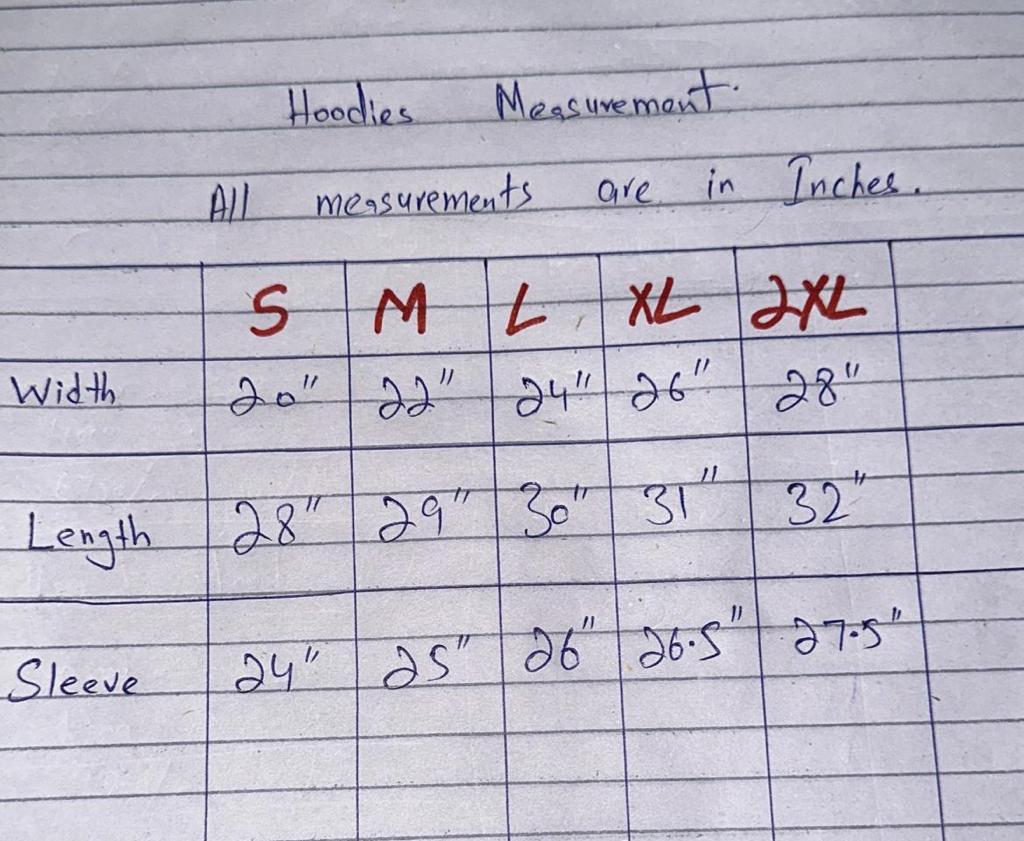 Hoodies Measurement.
All measurements are in Inches.
S M L XL 2XL
Width 20" 22" 24" 26" 28"
Length 28" 29" 30" 31" 32"
Sleeve 24" 25" 26" 26.5" 27.5"